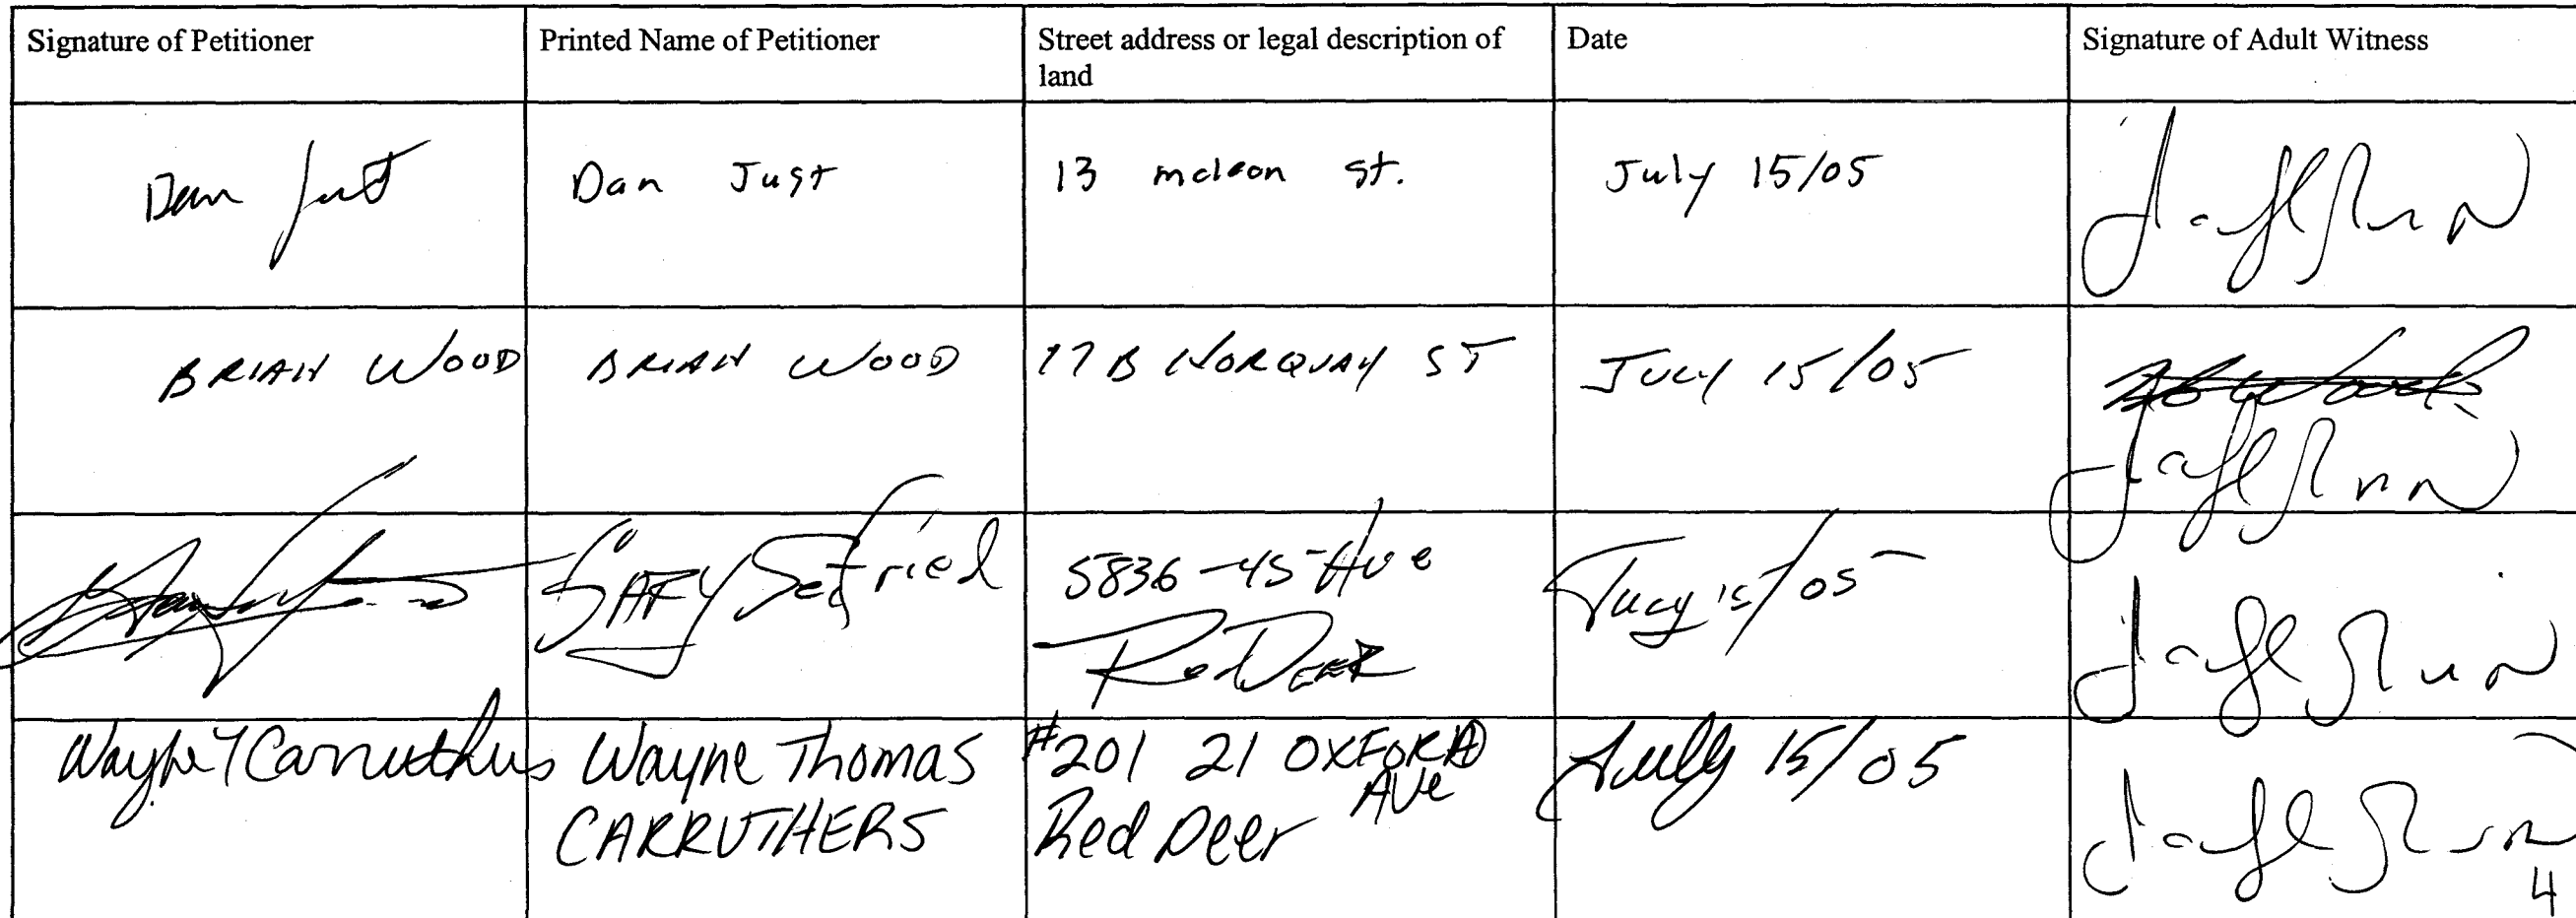 Signature of Petitioner
Printed Name of Petitioner
Street address or legal description of
land
Date
Signature of Adult Witness
Dan Just
Dan Just
13 mcleon st.
July 15/05
BRIAN WOOD
BRIAN WOOD
17 B NORQUAY ST
JULY 15/05
GARY Seifried
5836-45 Ave
Red DEER
July 15/05
Wayne T Carruthers
Wayne Thomas
CARRUTHERS
#201 21 OXFORD
AVe
Red Deer
July 15/05
4